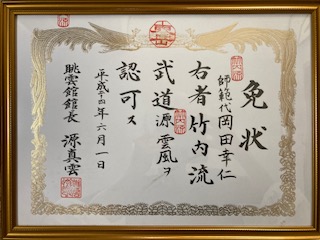 免状
師範代 岡田幸仁
右者竹内流
武道源雲風ヲ
認可ス
平成二十四年六月一日
眺雲館館長 源真雲